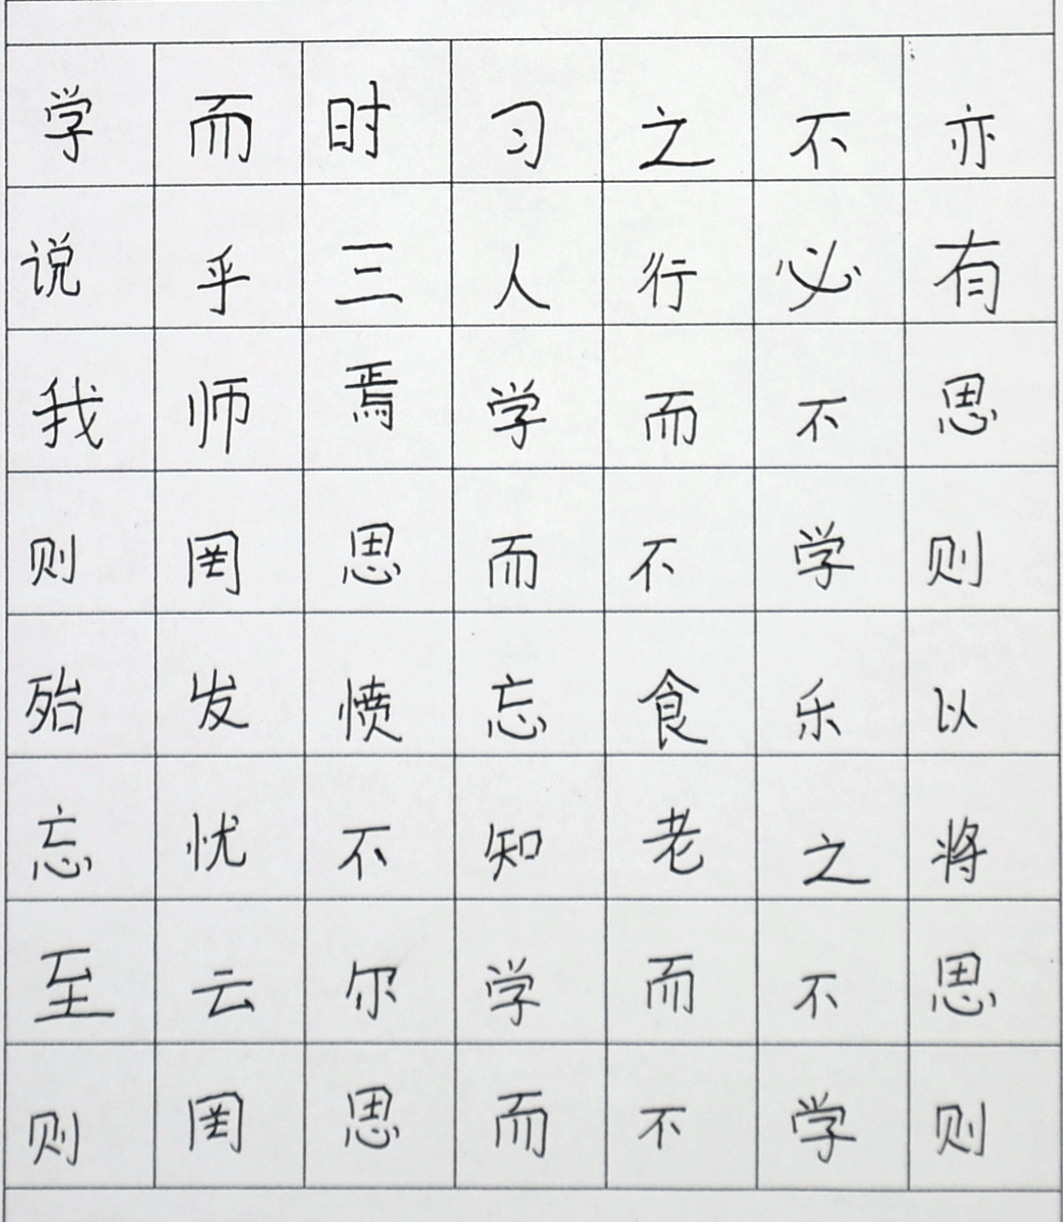 学而时习之不亦
说乎三人行必有
我师焉学而不思
则罔思而不学则
殆发愤忘食乐以
忘忧不知老之将
至云尔学而不思
则罔思而不学则